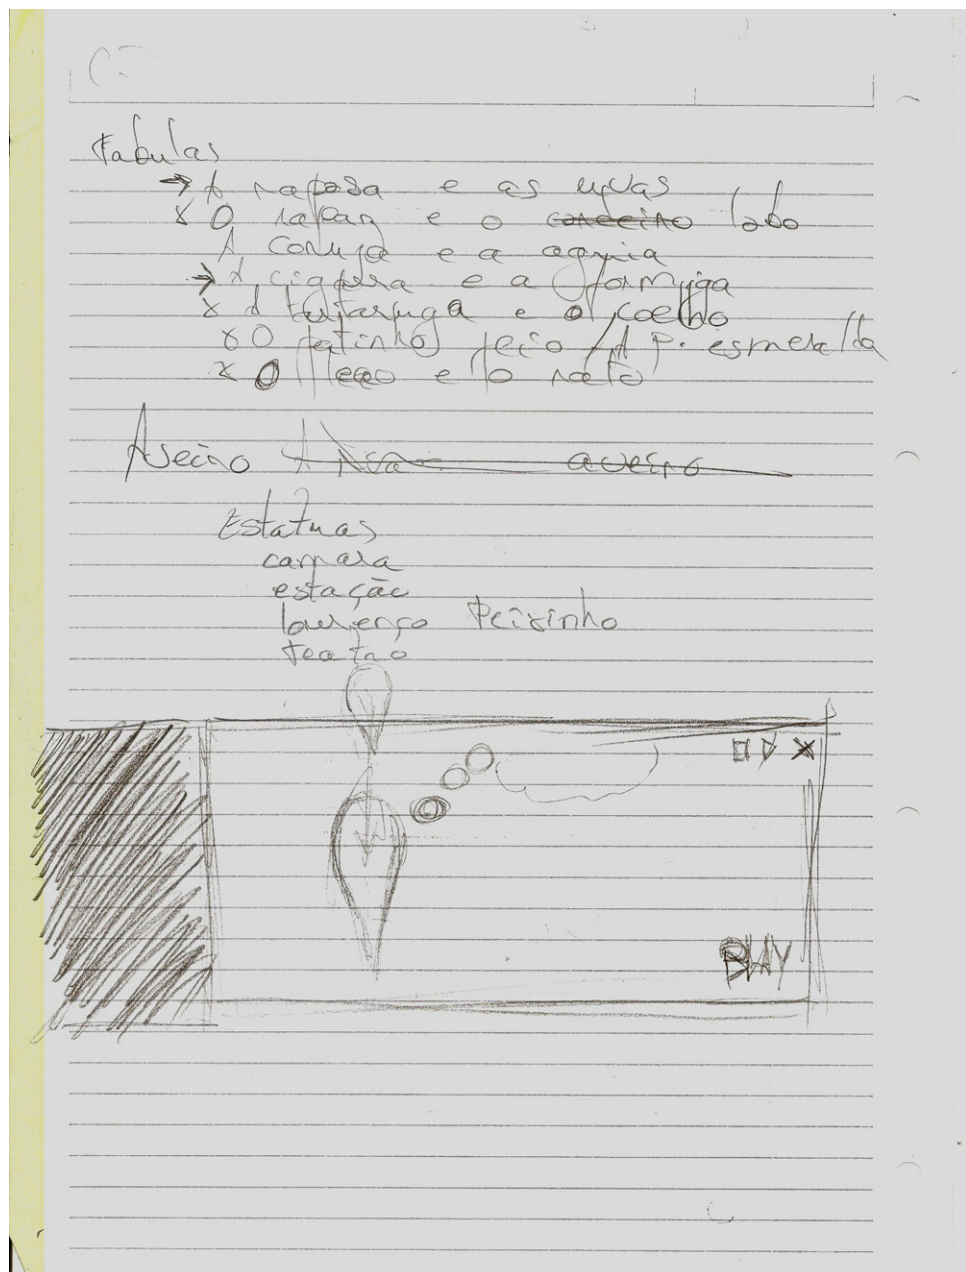 Fabulas
→ A raposa e as uvas
x O rapaz e o cordeiro lobo
A coruja e a aguia
→ A cigarra e a formiga
x A tartaruga e o coelho
x O patinho feio / A P. esmeralda
x O leao e o rato
Aveiro A Ria aveiro
Estatuas
camara
estação
lourenço Peixinho
teatro
PLAY